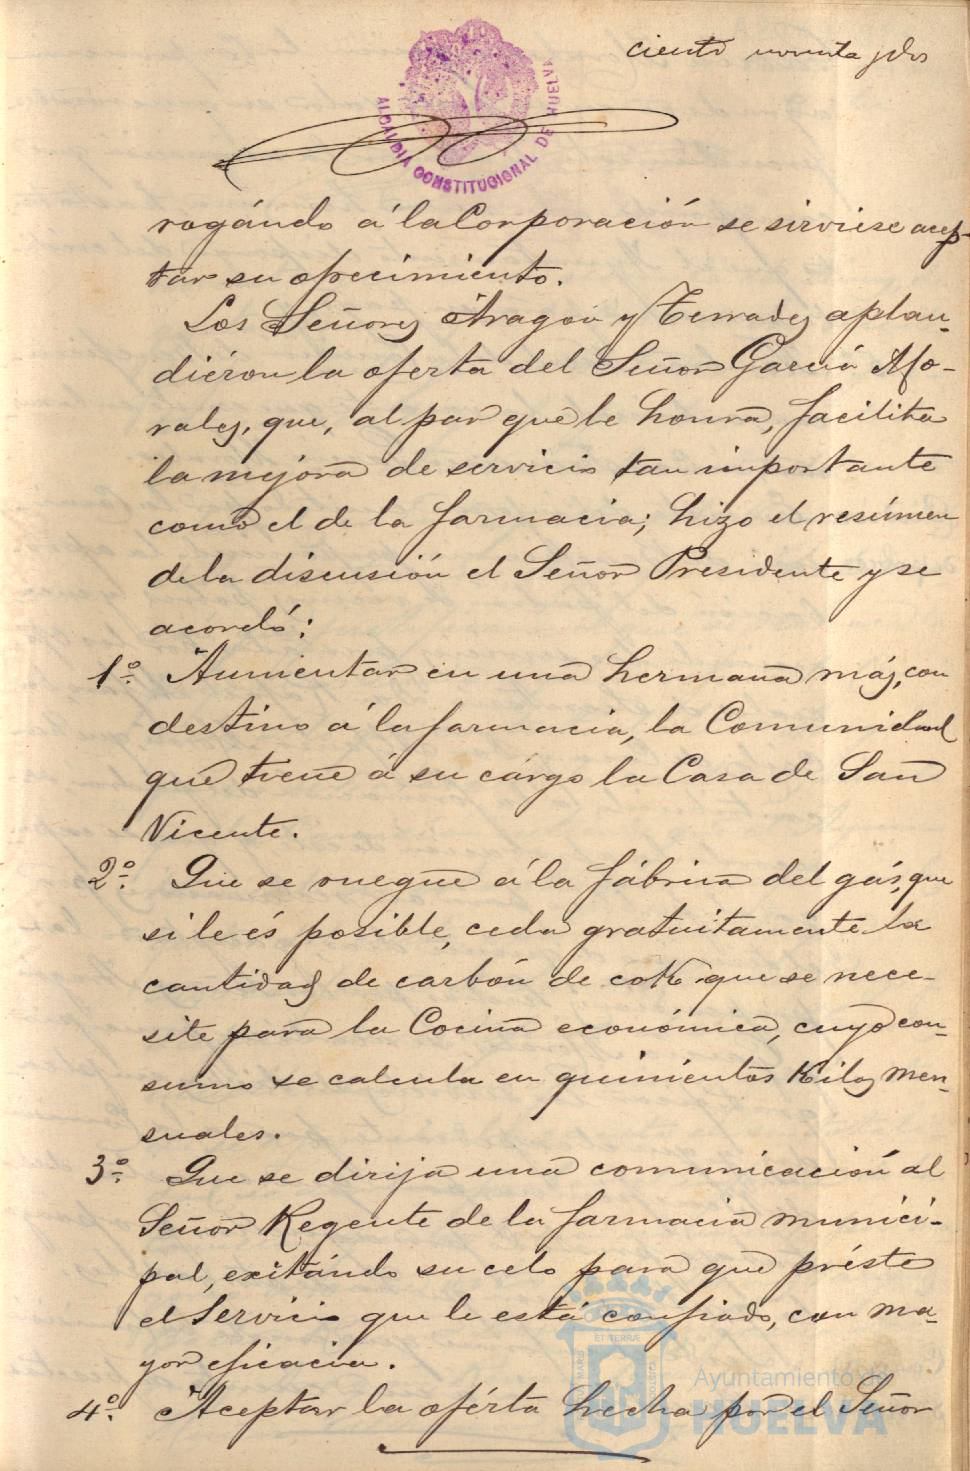 ciento noventa y dos
ALCALDIA CONSTITUCIONAL DE HUELVA
rogándo á la Corporación se sirviese acep-
tar su ofrecimiento.
Los Señores Aragon y Terrades aplau-
diéron la oferta del Señor García Mo-
rales, que, al par que le honra, facilita
la mejora de servicio tan importante
como el de la farmacia; hizo el resúmen
de la discusión el Señor Presidente y se
acordó:
1º. Aumentar en una hermana más, con
destino á la farmacia, la Comunidad
que tiene á su cárgo la Casa de San
Vicente.
2º. Que se ruegue á la fábrica del gás, que
si le és posible, ceda gratuitamente la
cantidad de carbón de coK que se nece-
site para la Cocina económica, cuyo con-
sumo se calcula en quinientos Kilos men-
suales.
3º. Que se dirija una comunicación al
Señor Regente de la farmacia munici-
pal, exitándo su celo para que préste
el Servicio que le está confiado, con ma-
yor eficacia.
4º. Aceptar la oférta hecha por el Señor
Ayuntamiento de
HUELVA